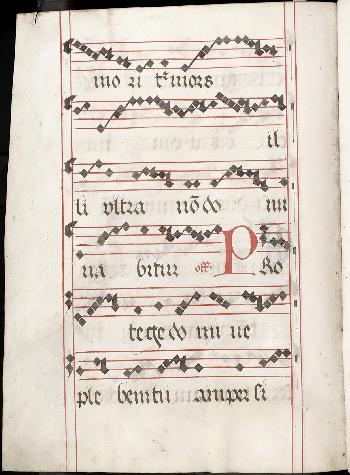 mo ri t᷑ mors
il
li vltra nō do mi
na bitur off. P Ro
tege do mi ne
ple bem tu am per si